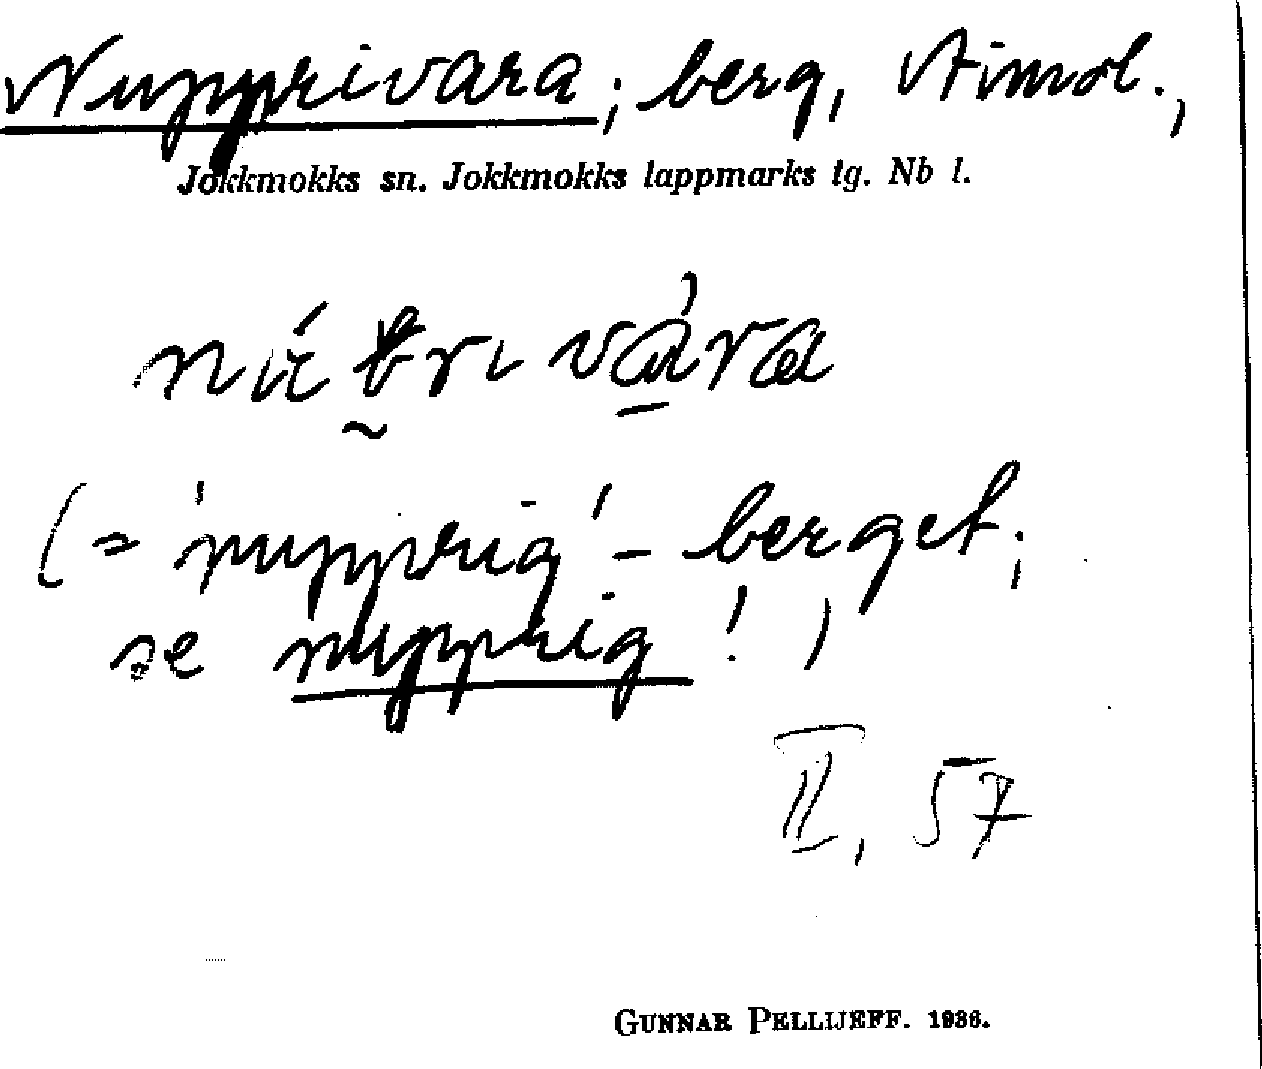 Nupprivara; berg,
Jokkmokks sn. Jokkmokks lappmarks tg. Nb l.
(= 'nupprig' - berget;
se nupprig!)
II, 57
GUNNAR PELLIJEFF. 1936.